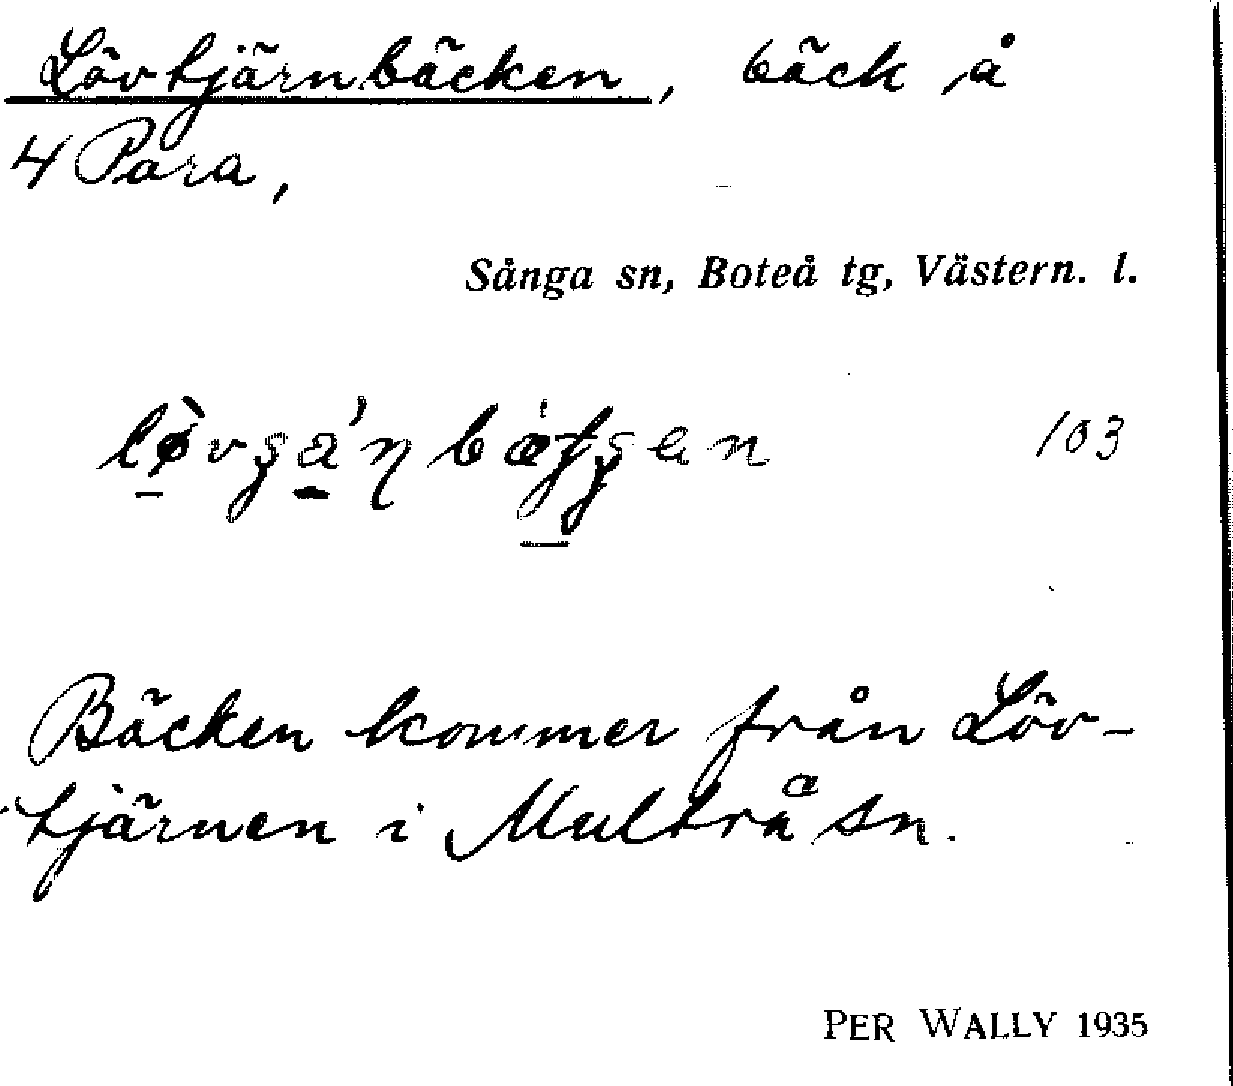 Lövtjärnbäcken, bäck å
4 Para,
Sånga sn, Boteå tg, Västern. l.
103
Bäcken kommer från Löv-
tjärnen i Multrå sn.
PER WALLY 1935